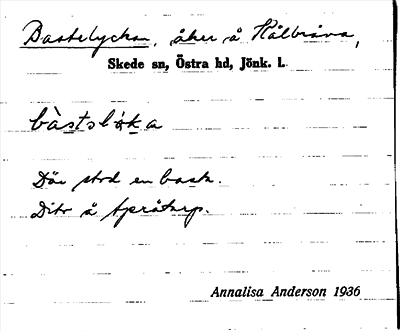 Bastelyckan, åker å Hålbråna,
Skede sn, Östra hd, Jönk. l.
bàstsl k a
Där stod en bastu.
Dito å Språtarp.
Annalisa Anderson 1936